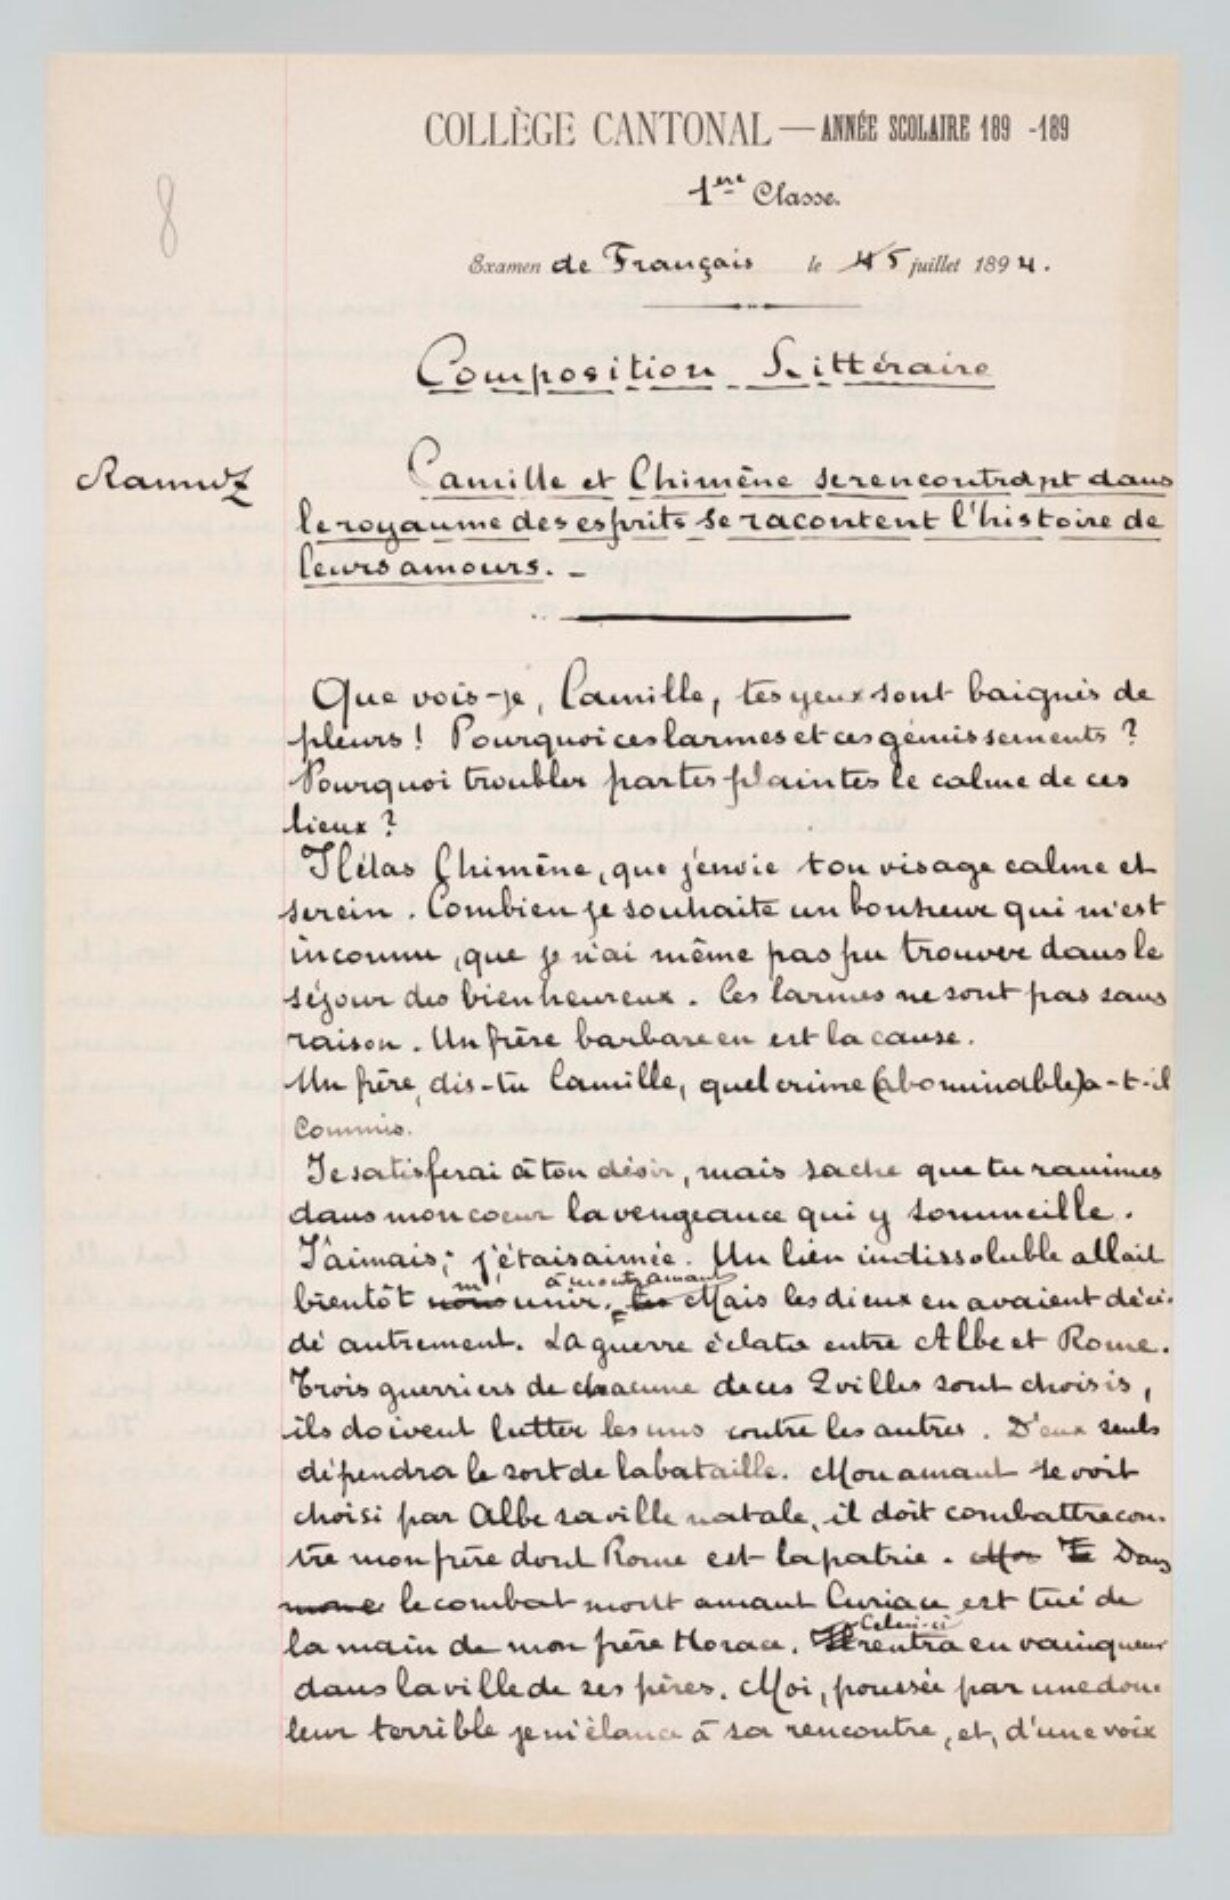 COLLÈGE CANTONAL — ANNÉE SCOLAIRE 189 -189
8
1ère Classe.
Examen de Français le 5 juillet 1894.
Composition Littéraire
Ramuz
Camille et Chimène se rencontrant dans
le royaume des esprits se racontent l'histoire de
leurs amours. -
Que vois-je, Camille, tes yeux sont baignés de
pleurs ! Pourquoi ces larmes et ces gémissements ?
Pourquoi troubler par tes plaintes le calme de ces
lieux ?
Hélas Chimène, que j'envie ton visage calme et
serein. Combien je souhaite un bonheur qui m'est
inconnu, que je n'ai même pas pu trouver dans le
séjour des bienheureux. Ces larmes ne sont pas sans
raison. Un frère barbare en est la cause.
Un frère, dis-tu Camille, quel crime (abominable) a-t-il
commis.
Je satisferai à ton désir, mais sache que tu ranimes
dans mon coeur la vengeance qui y sommeille.
J'aimais; j'étais aimée. Un lien indissoluble allait
m' à mon amant
bientôt nous unir. Mais les dieux en avaient déci-
dé autrement. La guerre éclata entre Albe et Rome.
Trois guerriers de chacune de ces 2 villes sont choisis,
ils doivent lutter les uns contre les autres. D'eux seuls
dépendra le sort de la bataille. Mon amant se voit
choisi par Albe sa ville natale, il doit combattre con-
tre mon frère dont Rome est la patrie. Mon Dans
le combat mon amant Curiace est tué de
Celui-ci
la main de mon frère Horace. Il rentra en vainqueur
dans la ville de ses pères. Moi, poussée par une dou-
leur terrible je m'élance à sa rencontre, et, d'une voix